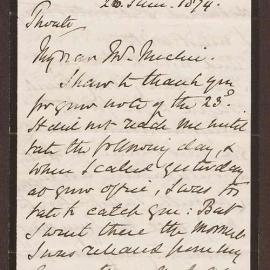 26 June. 1874.
Private
My dear Mr. Michie.
I have to thank you
for your note of the 23d.
It did not reach me until
late the following day, &
when I called yesterday
at your office, I was too
late to catch you: But
I went there the moment
I was released from my